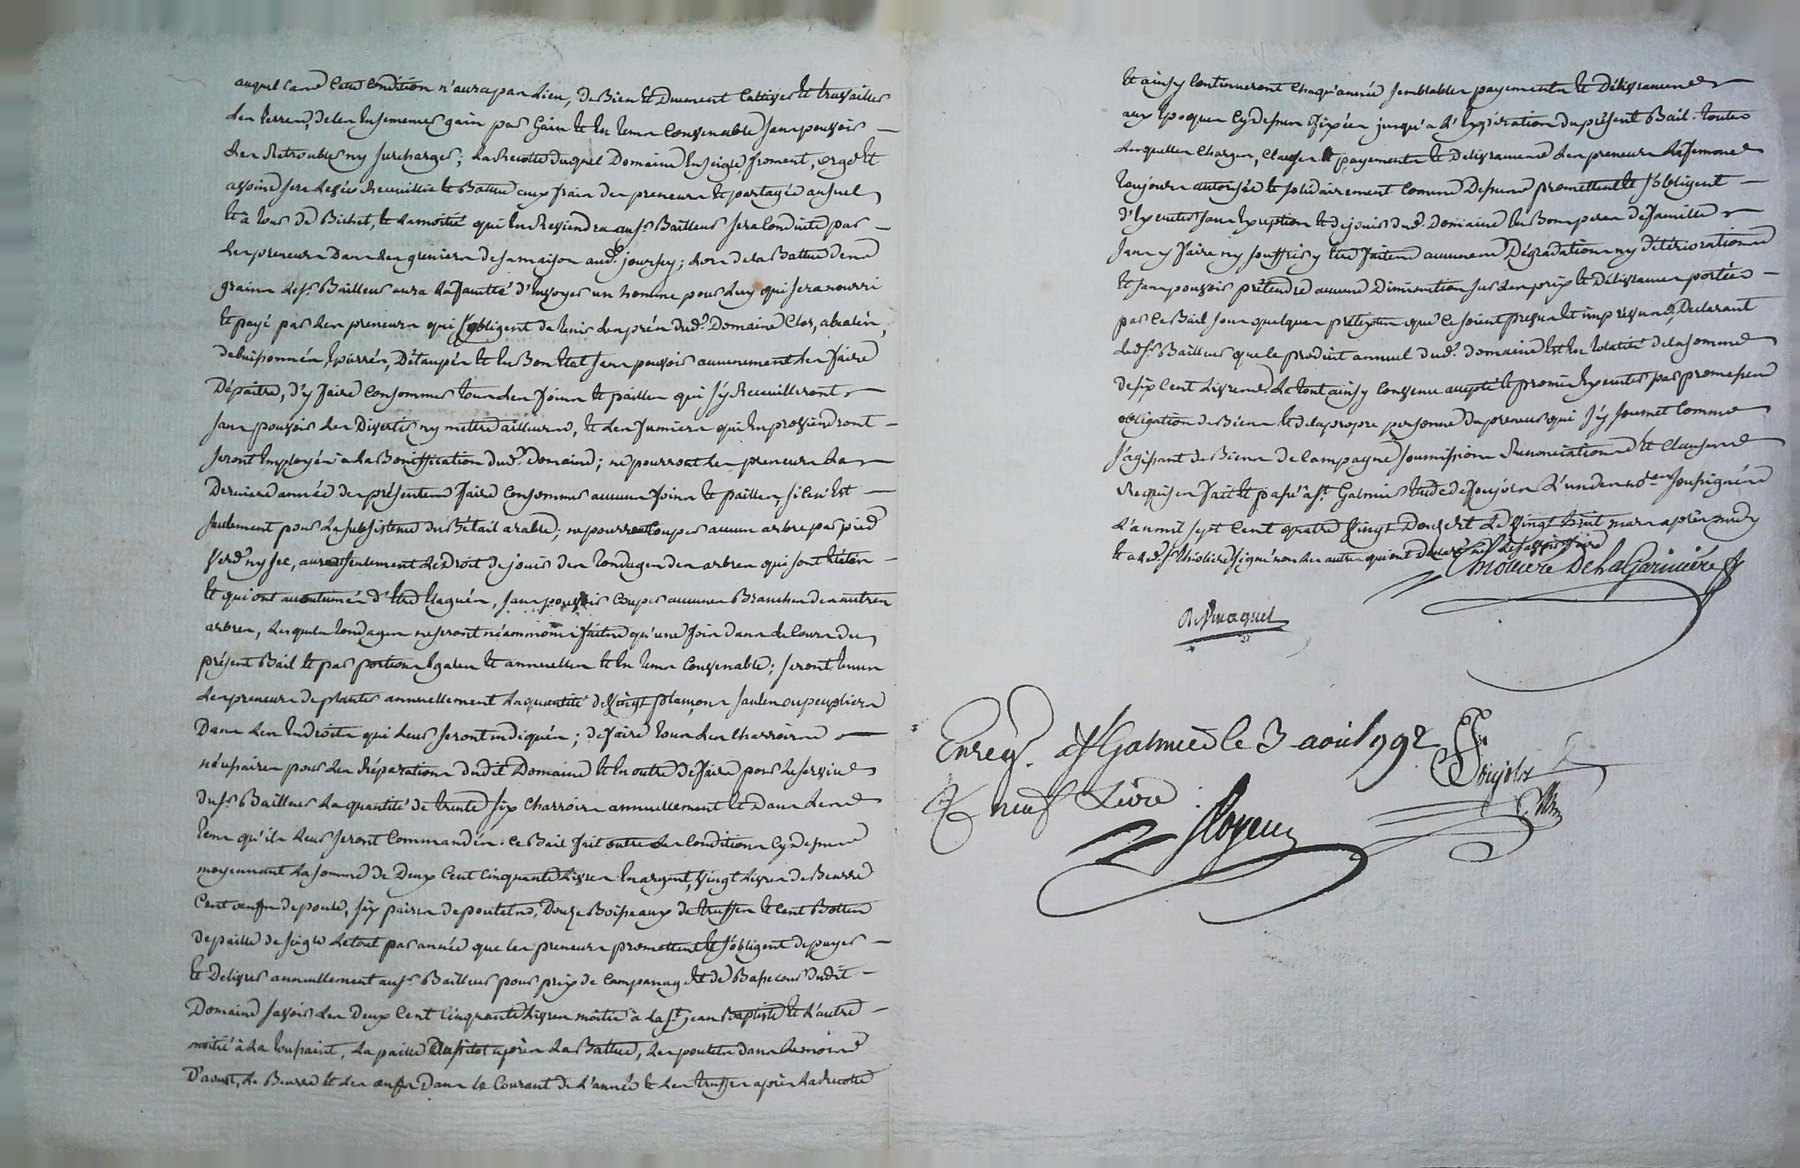 auquel cas cette condition n'aura pas lieu, de bien et duement cultiver et travailler
les terres, de les ensemencer gain par gain et en tems convenable sans pouvoir
les retroubler ny surcharger; la recolte duquel Domaine en seigle, froment, orge et
avoine sera levée recueillie et battue aux frais des preneurs et partagée au suel
et à tour de Bichet, et la moitié qui en reviendra aud. sr. Bailleur sera conduite par
les preneurs dans les greniers de sa maison aud. joursey; lors de la Battue des
grains led. sr. Bailleur aura la faculté d'envoyer un homme pour luy qui sera nourri
et payé par les preneurs qui s'obligent de tenir les prés dud. Domaine clos, abealés,
debuissonnés épierrés, détaupés et en bon état sans pouvoir aucunement les faire
Dépaitre, d'y faire consommer tous les foins et pailles qui s'y recueilleront
sans pouvoir les divertir ny mettre ailleurs, et les fumiers qui en proviendront
seront employés à la Bonification dud. Domaine; ne pourront les preneurs la
Derniere année des présentes faire consommer aucun foins et pailles, si ce n'est
seulement pour la subsistance du Bétail arable; ne pourront couper aucun arbre par pied
verd ny sec, auront seulement le Droit de jouir des tondages des arbres qui sont étetés
et qui ont accoutumés d'être élagués, sans pouvoir couper aucunes Branches des autres
arbres, lesquels tondages ne seront néammoins faitte qu'une fois dans le cours du
présent Bail et par portions égales et annuelles et en tems convenable; seront tenus
les preneurs de planter annuellement la quantité de vingt plançons saules ou peupliers
Dans les endroits qui leur seront indiqués; de faire tous les charroirs
nécessaires pour les réparations dudit Domaine et en outre de faire pour le service
dud. sr. Bailleur la quantité de trente six charroirs annuellement et dans les
tems qu'ils leur seront commandés. ce Bail fait outre les conditions cy dessus
moyennant la somme de Deux cent cinquante livres en argent, vingt livres de Beurre
Cent œufs de poule, six paires de poulets, Douze Boisseaux de truffes et cent Bottes
de paille de seigle le tout par année que les preneurs promettent et s'obligent de payer
et Delivrer annuellement aud. sr. Bailleur pour prix de campanage et de Basse cour dudit
Domaine savoir les Deux cent cinquante livres moitié à la St. jean Baptiste et l'autre
moitié à la toussaint, la paille aussitot après la Battue, les poulets dans le mois
D'aoust, le Beurre et les œufs Dans le Courant de l'année et les truffes après la recolte
et ainsy continueront chaqu'année semblables payements et Délivrances
aux époques cy dessus fixées jusqu'à l'expiration du présent Bail. toutes
lesquelles charges, clauses et payements et Délivrances les preneurs la femme
toujours autorisée et solidairement comme Dessus promettent et s'obligent
d'executer sans exception et de jouir dud. Domaine en Bons peres de famille
sans y faire ny souffrir y être faittes aucunes Dégradations ny détériorations
et sans pouvoir prétendre aucune Diminution sur les prix et Délivrances portées
par ce Bail sous quelques prétextes que ce soient prévus et imprevus, Déclarant
led. sr. Bailleur que le produit annuel dud. domaine est en totalité de la somme
de six cent livres. le tout ainsy convenu accepté et promis executer par promesses
obligation de Biens et de la propre personne du preneur qui s'y soumet comme
s'agissant de Biens de campagne soumissions Renonciations et clauses
Requises fait et passé à st. Galmier etude de Foujols l'un des nores soussignés
l'an mil sept cent quatre vingt Douze et le vingt huit mars après midy
et a led. sr. Choliere signé non les autres qui ont declaré ne le savoir faire
Enreg. à st Galmier le 3 avril 792
neuf Livre